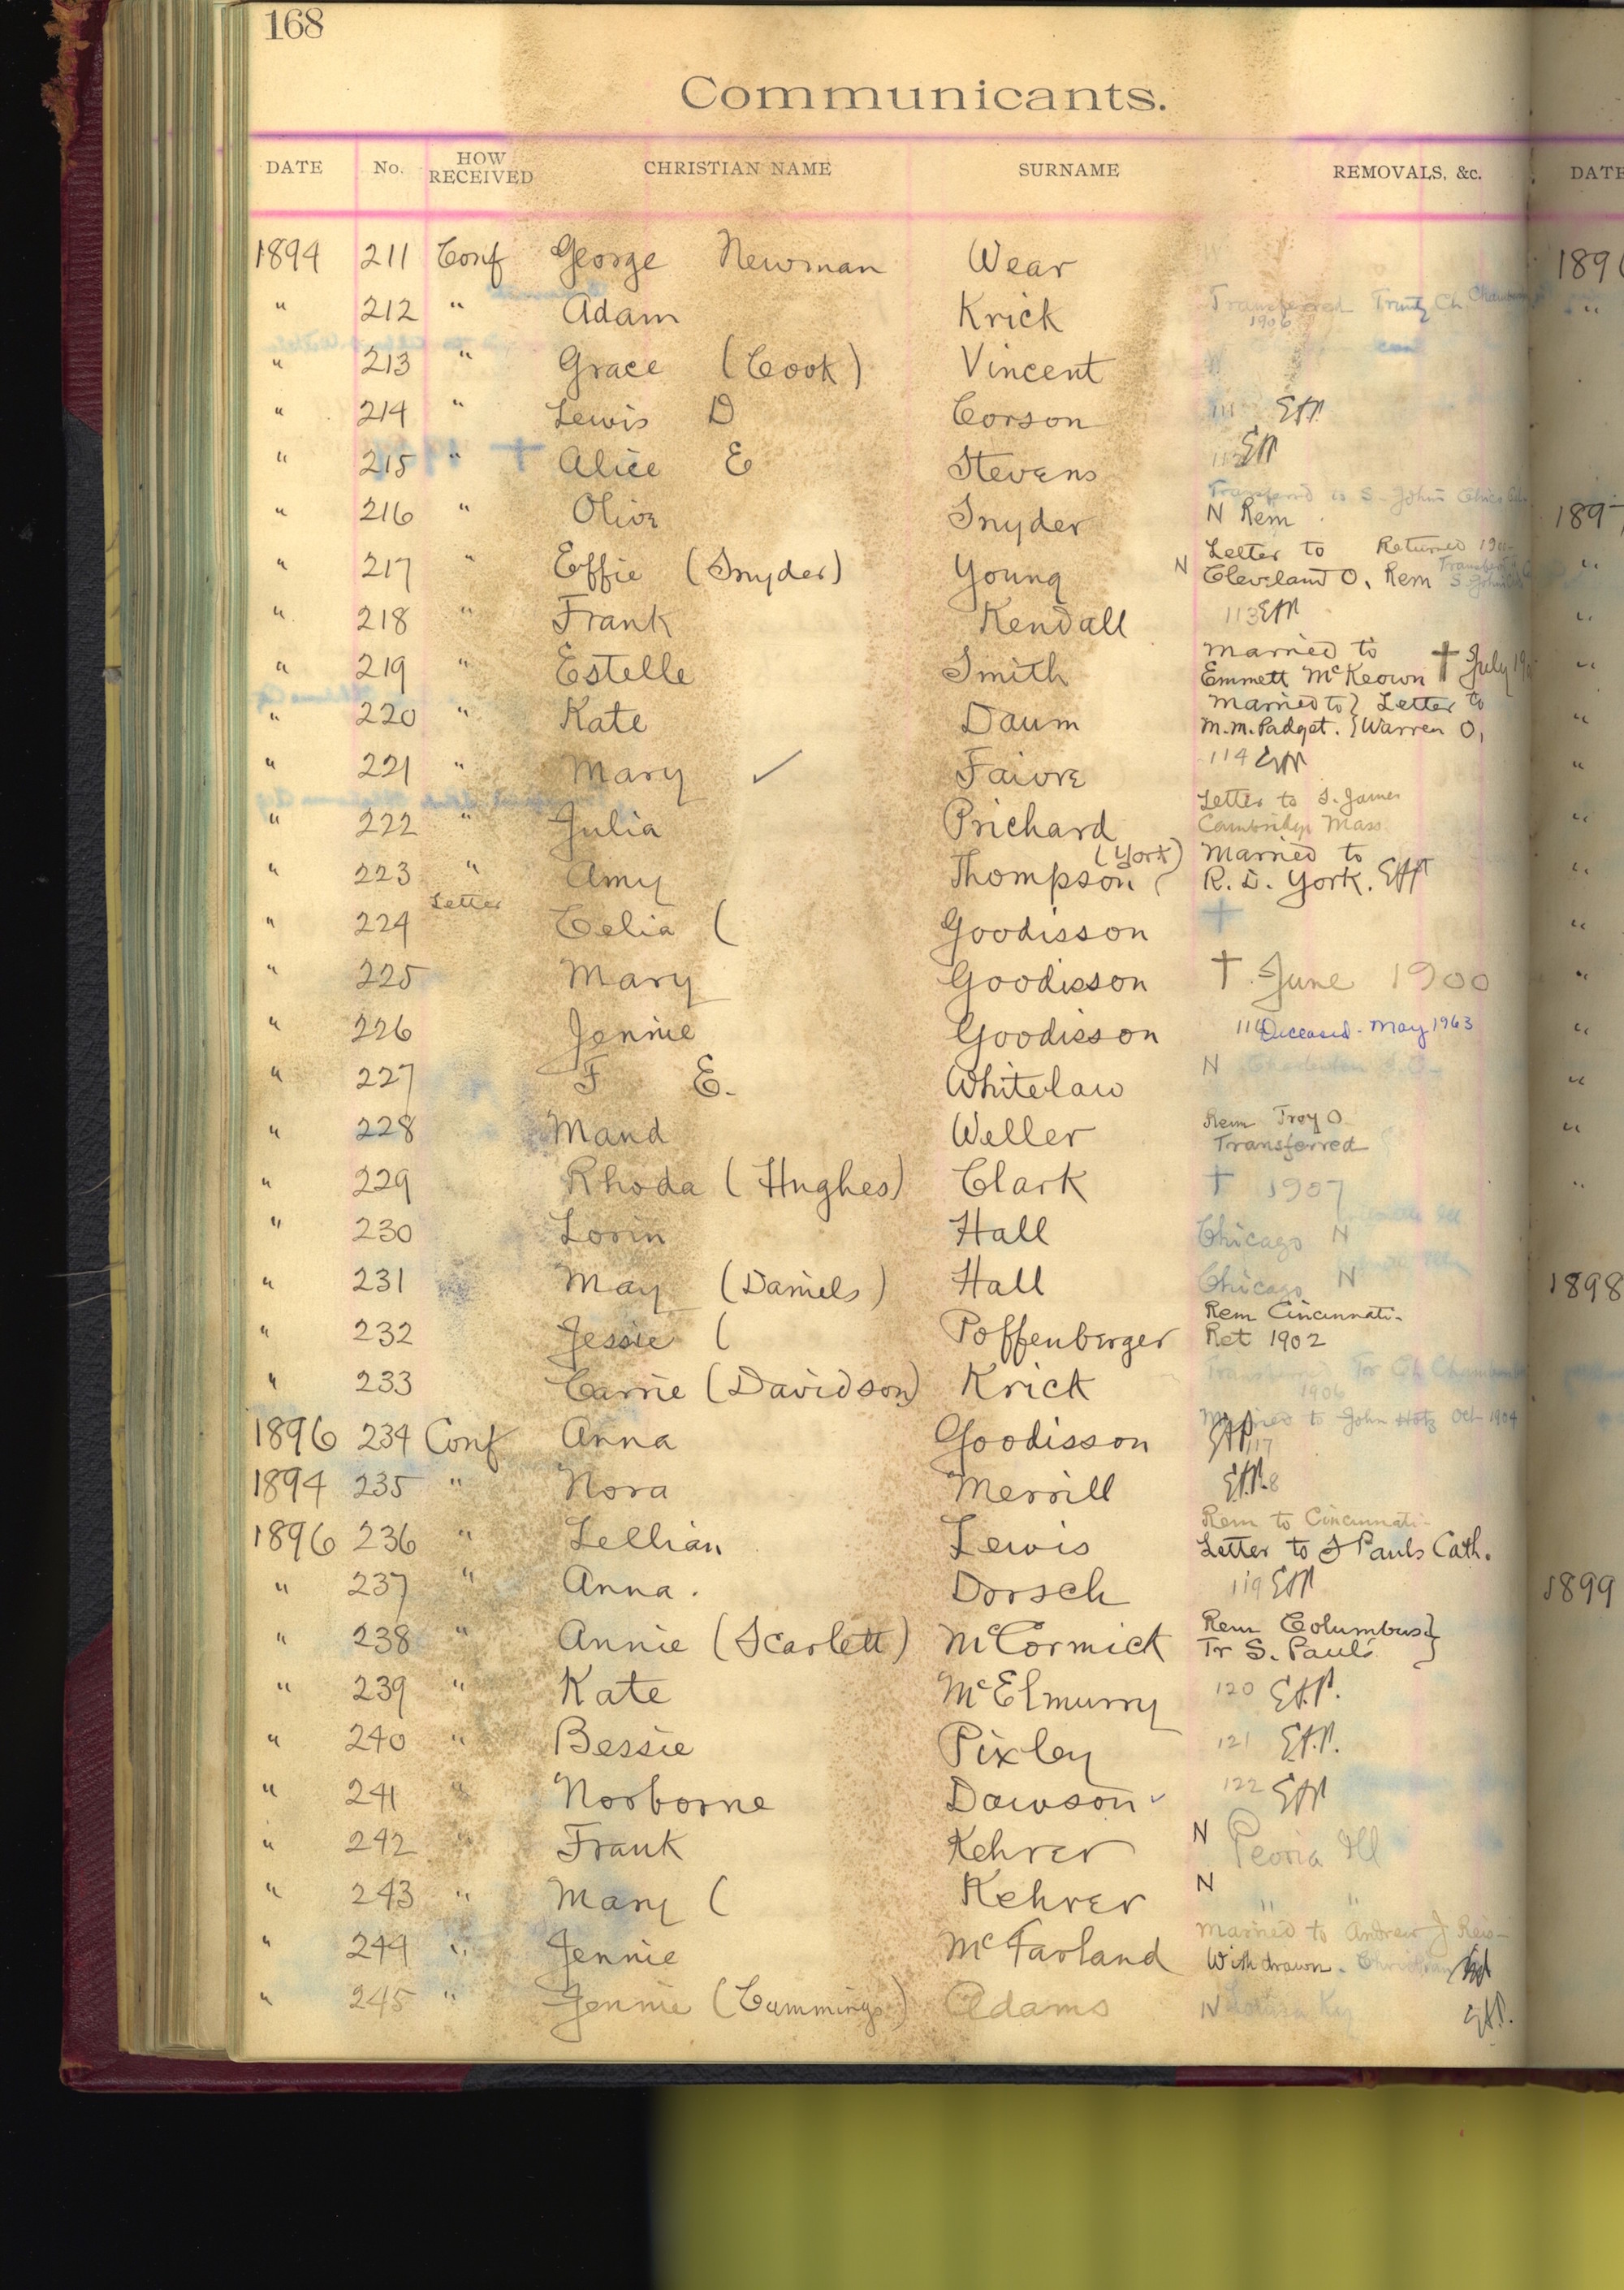 168
Communicants.
DATE No. HOW RECEIVED CHRISTIAN NAME SURNAME REMOVALS, &c. DATE
1894 211 Conf George Newman Wear
" 212 " Adam Krick Transferred Trinity Ch 1906
" 213 " Grace (Cook) Vincent
" 214 " Lewis D Corson 111
" 215 " Alice E Stevens 112
Transferred to S. Johns
" 216 " Olive Snyder N Rem
Letter to Returned
" 217 " Effie (Snyder) Young N Cleveland O, Rem
" 218 " Frank Kendall 113
Married to † July
" 219 " Estelle Smith Emmett McKeown
Married to } Letter to
" 220 " Kate Daum M.M. Padget. } Warren O,
" 221 " Mary ✓ Faivre 114
Letter to S. James
" 222 " Julia Prichard Cambridge Mass
(York) Married to
" 223 " Amy Thompson ( R. D. York.
" 224 Letter Celia ( Goodisson +
" 225 Mary Goodisson † June 1900
" 226 Jennie Goodisson 116 Deceased - May 1963
" 227 F E. Whitelaw N
" 228 Maud Weller Rem Troy O
Transferred
" 229 Rhoda (Hughes) Clark † 1907
" 230 Lorin Hall Chicago N
" 231 May (Daniels) Hall Chicago N
Rem Cincinnati.
" 232 Jessie ( Poffenberger Ret 1902
" 233 Carrie (Davidson) Krick 1906
Married to John Hotz Oct 1904
1896 234 Conf Anna Goodisson 117
1894 235 " Nora Merrill
Rem to Cincinnati-
1896 236 " Lellian Lewis Letter to S Pauls Cath.
" 237 " Anna. Dorsch 119
Rem Columbus }
" 238 " Annie (Scarlett) McCormick Tr S. Pauls }
" 239 " Kate McElmurry 120
" 240 " Bessie Pixley 121
" 241 " Norborne Dawson ✓ 122
" 242 " Frank Kehrer N Peoria Ill
" 243 " Mary ( Kehrer N " "
Married to Andrew J Reis-
" 244 " Jennie McFarland Withdrawn.
" 245 " Jennie (Cummings) Adams N Ky
189
"
189
"
"
"
"
"
"
"
"
"
"
"
"
"
1898
1899